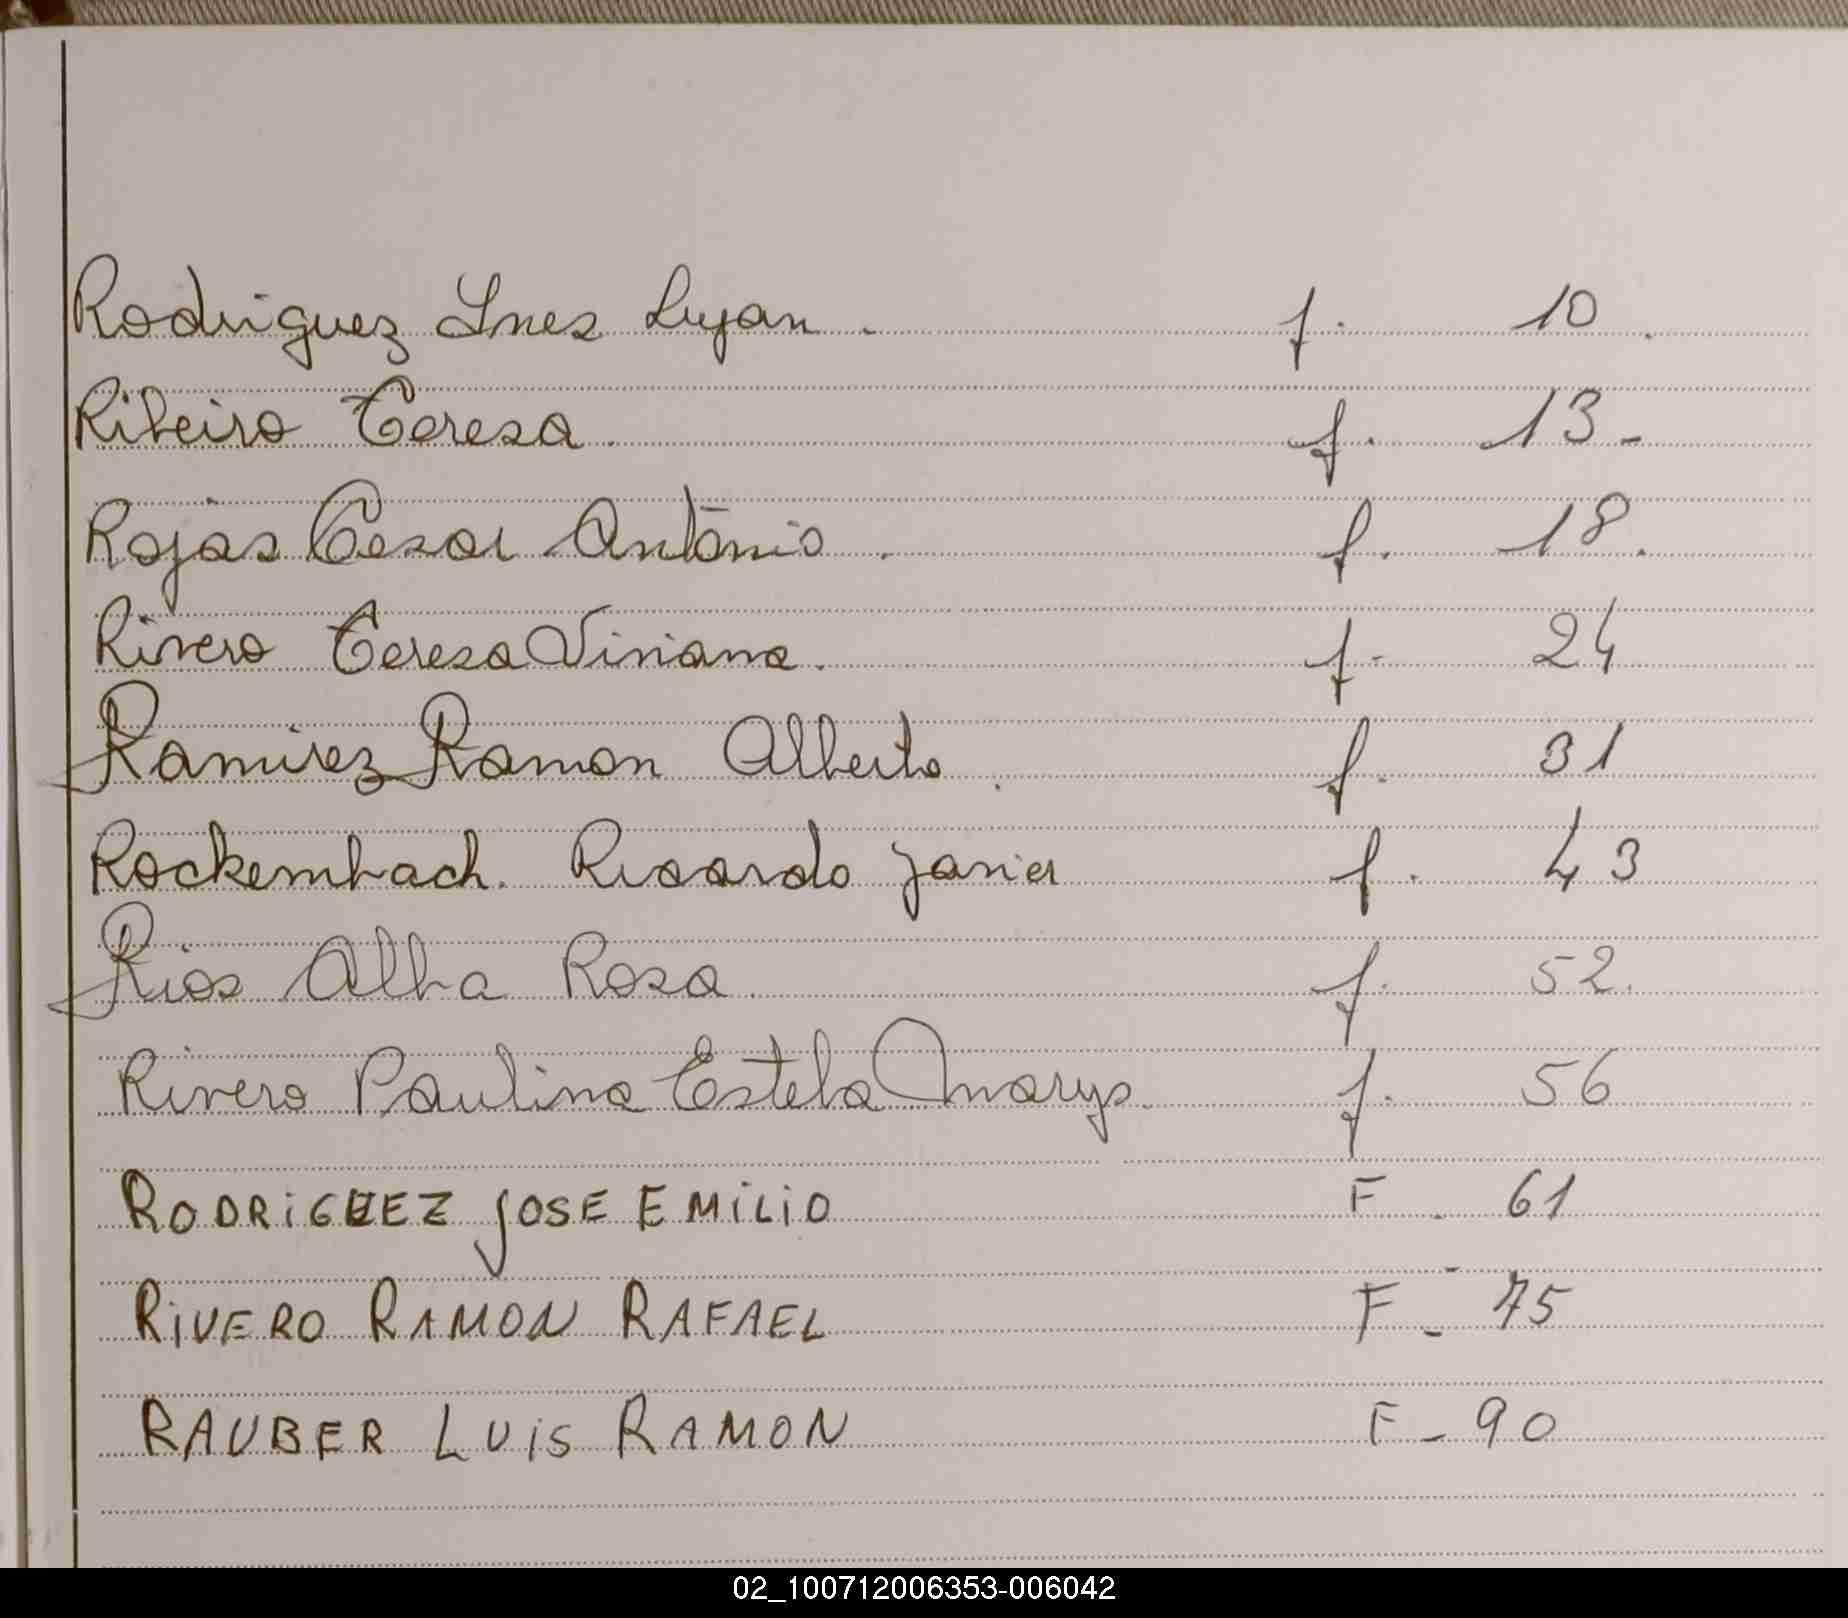 Rodriguez Ines Lujan. f. 10.
Ribeiro Teresa. f. 13-
Rojas Cesar Antonio. f. 18.
Rivero Teresa Viviana. f- 24
Ramirez Ramon Alberto. f. 31
Rockembach. Ricardo Javier f. 43
Rios Alba Rosa f. 52.
Rivero Paulina Estela Marys. f. 56
RODRIGUEZ JOSE EMILIO F. 61
RIVERO RAMON RAFAEL F- 75
RAUBER LUIS RAMON F- 90
02_100712006353-006042